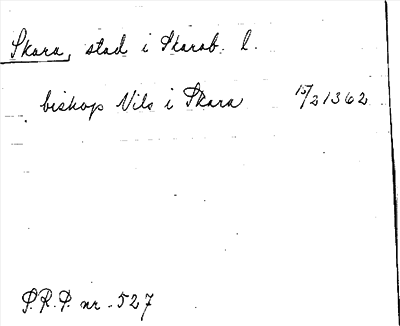 Skara, stad i Skarab. l.
biskop Nils i Skara 15/2 1362
S.R.P. nr. 527